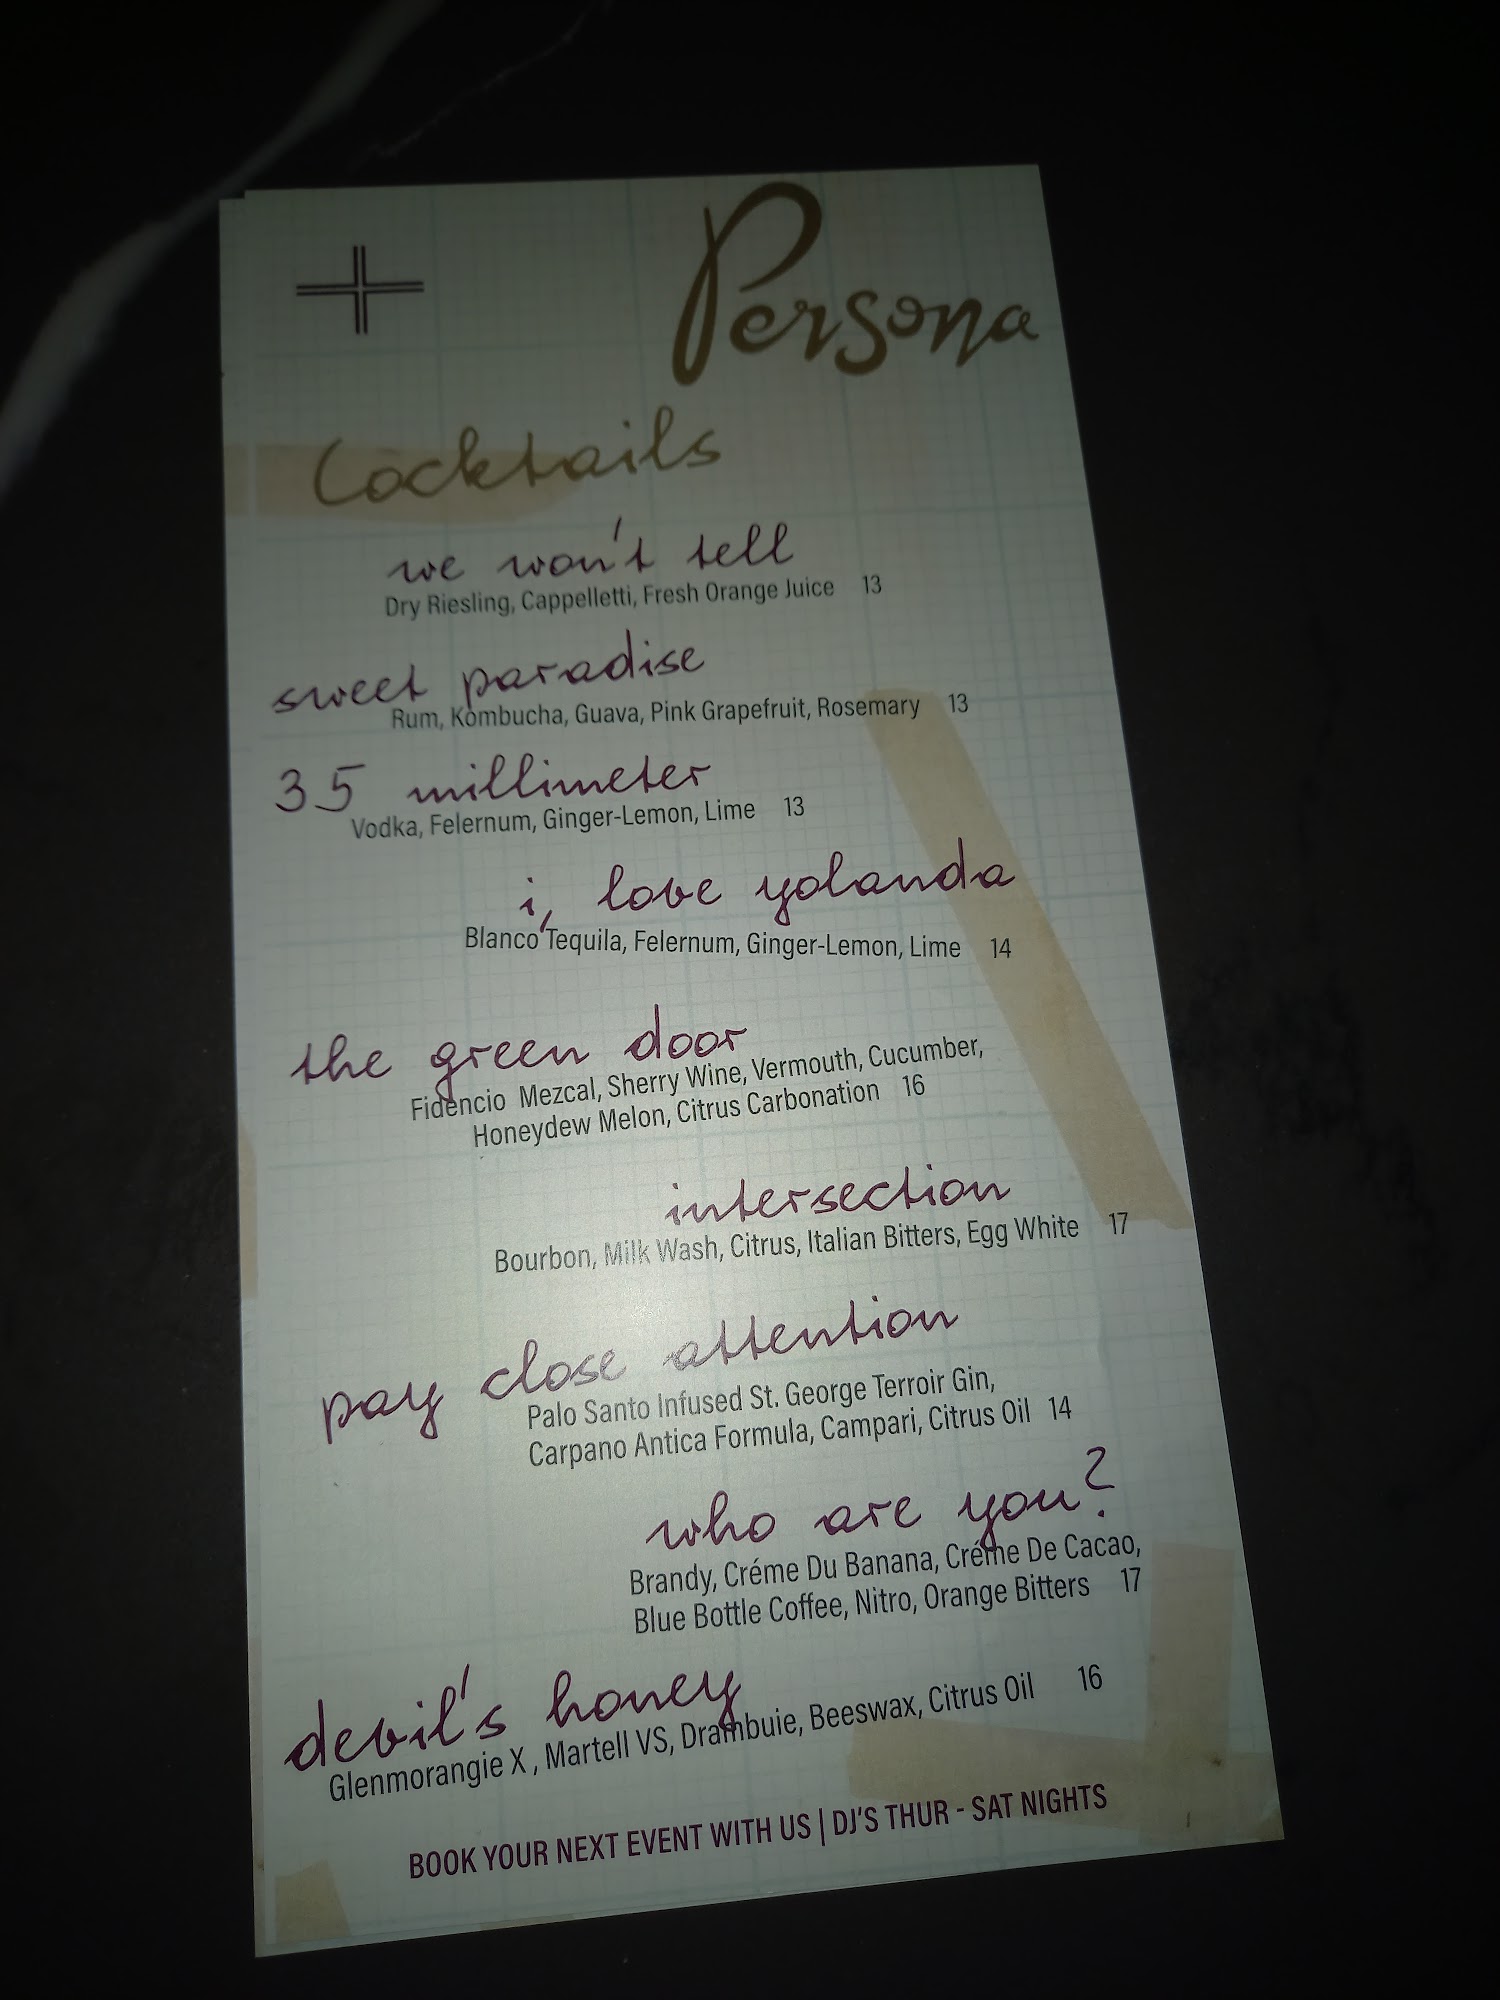 Persona
Cocktails
we won't tell
Dry Riesling, Cappelletti, Fresh Orange Juice 13
sweet paradise
Rum, Kombucha, Guava, Pink Grapefruit, Rosemary 13
35 millimeter
Vodka, Felernum, Ginger-Lemon, Lime 13
i, love yolanda
Blanco Tequila, Felernum, Ginger-Lemon, Lime 14
the green door
Fidencio Mezcal, Sherry Wine, Vermouth, Cucumber,
Honeydew Melon, Citrus Carbonation 16
intersection
Bourbon, Milk Wash, Citrus, Italian Bitters, Egg White 17
pay close attention
Palo Santo Infused St. George Terroir Gin,
Carpano Antica Formula, Campari, Citrus Oil 14
who are you?
Brandy, Créme Du Banana, Créme De Cacao,
Blue Bottle Coffee, Nitro, Orange Bitters 17
devil's honey
Glenmorangie X , Martell VS, Drambuie, Beeswax, Citrus Oil 16
BOOK YOUR NEXT EVENT WITH US | DJ'S THUR - SAT NIGHTS